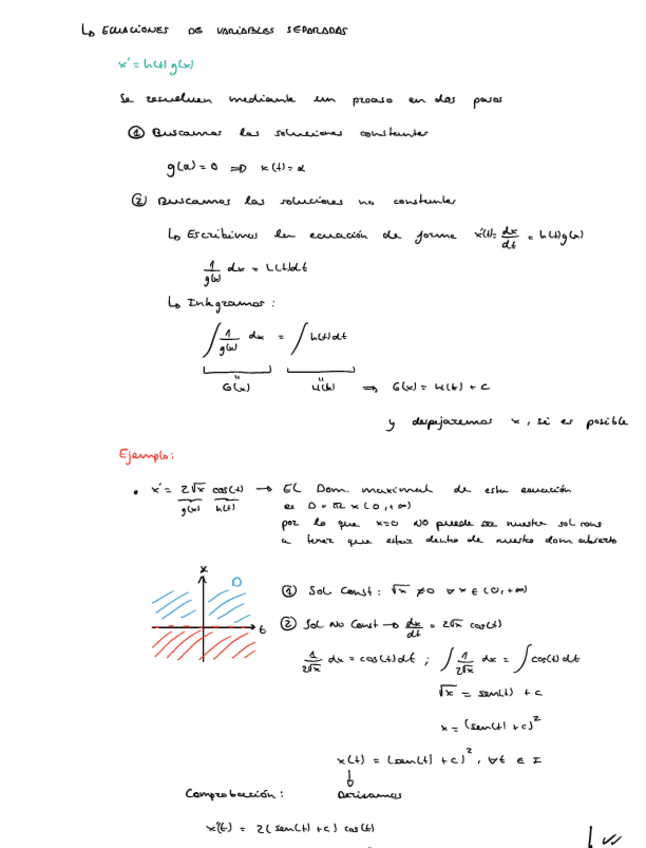 ↳ ECUACIONES DE VARIABLES SEPARADAS
x' = h(t) g(x)
Se resuelven mediante un proceso en dos pasos
① Buscamos las soluciones constantes
g(α) = 0 ⇒ x(t) = α
② Buscamos las soluciones no constantes
↳ Escribimos la ecuación de forma x'(t) = dx/dt = h(t) g(x)
1/g(x) dx = h(t)dt
↳ Integramos:
∫ 1/g(x) dx = ∫ h(t)dt
G(x) H(t) ⇒ G(x) = H(t) + C
y despejaremos x, si es posible
Ejemplo:
• x' = 2√x cos(t) → El Dom. maximal de esta ecuación
g(x) h(t) es D = ℝ x (0,+∞)
por lo que x=0 NO puede ser nuestra sol cons
a tener que estar dentro de nuestro dom abierto
x D
① Sol Const: √x ≠ 0 ∀x ∈ (0,+∞)
t ② Sol No Const → dx/dt = 2√x cos(t)
1/2√x dx = cos(t)dt ; ∫ 1/2√x dx = ∫ cos(t)dt
√x = sen(t) + c
x = (sen(t) + c)²
x(t) = (sen(t) + c)², ∀t ∈ I
Comprobación: Derivamos
x'(t) = 2(sen(t) + c) cos(t)